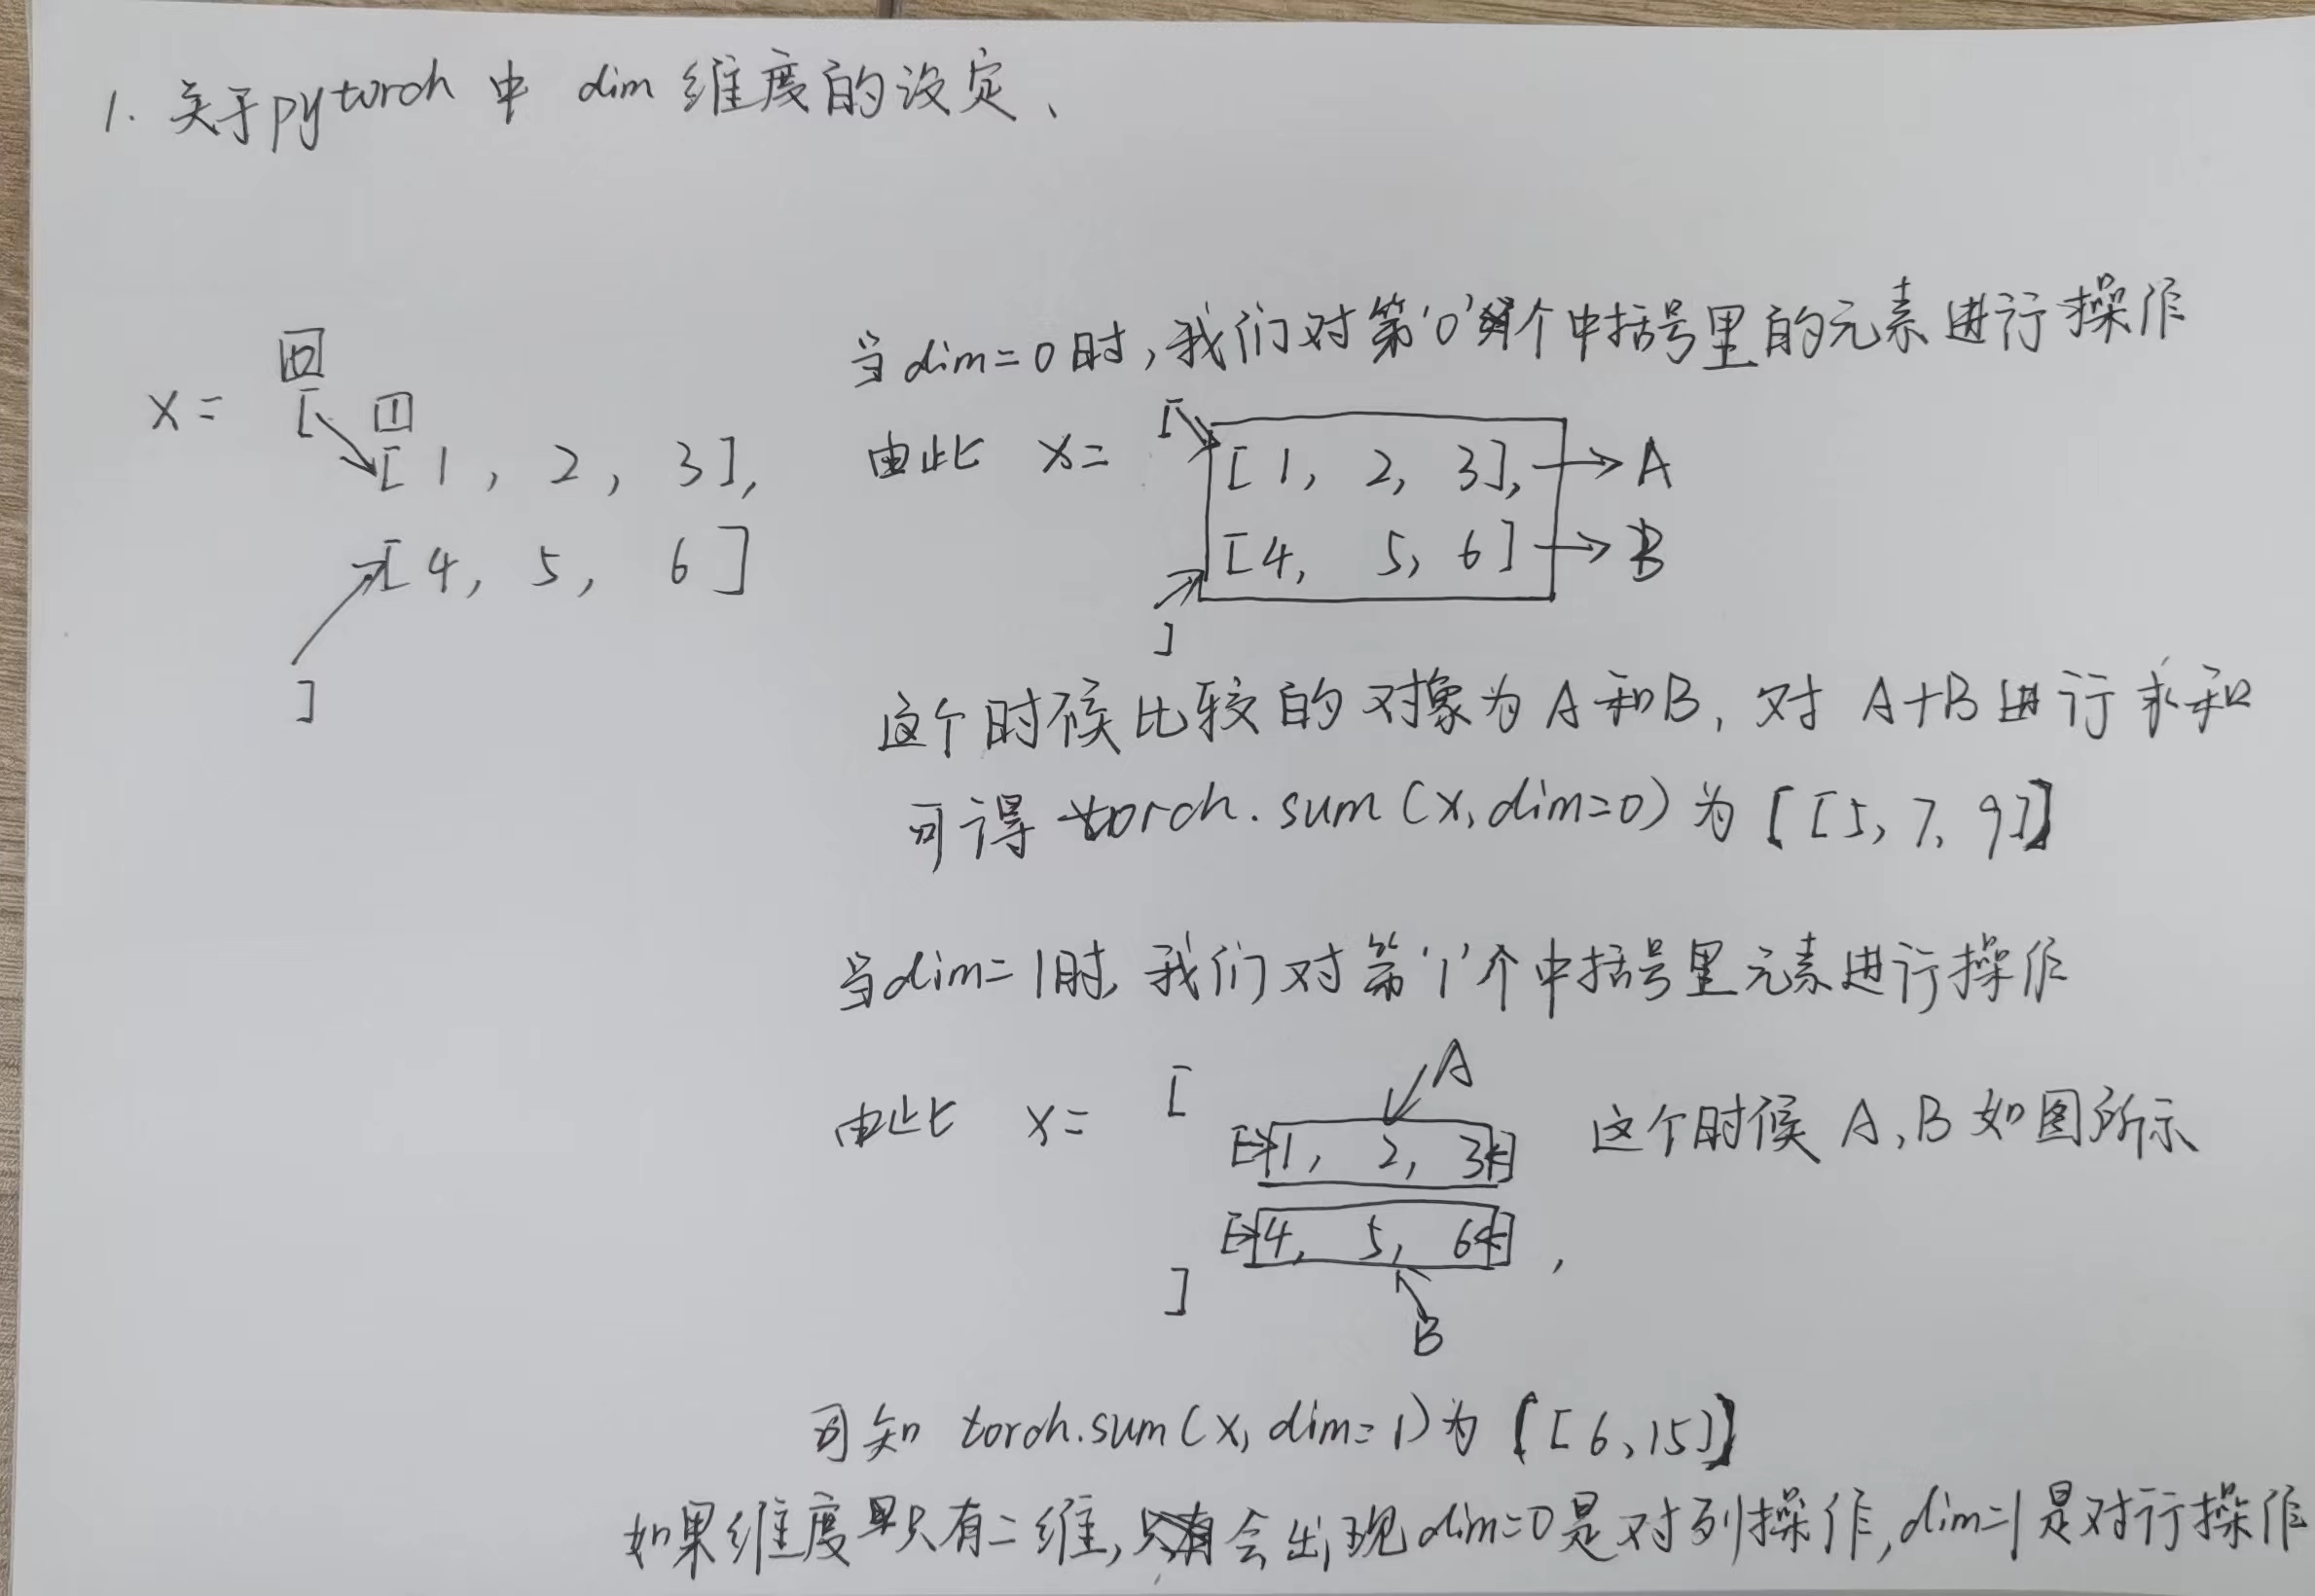 1. 关于pytorch 中 dim 维度的设定、
当dim=0时,我们对第'0'个中括号里的元素进行操作
0
x= [ 1
[1, 2, 3],
[4, 5, 6]
]
由此 x= [
[1, 2, 3], → A
[4, 5, 6] → B
]
这个时候比较的对象为A和B, 对 A+B进行求和
可得 torch.sum(x,dim=0)为[[5,7,9]]
当dim=1时,我们对第'1'个中括号里元素进行操作
由此 x= [ A
[1, 2, 3] 这个时候 A,B如图所示
[4, 5, 6],
]
B
可知 torch.sum(x,dim=1)为[[6,15]]
如果维度只有二维,会出现dim=0是对列操作,dim=1是对行操作